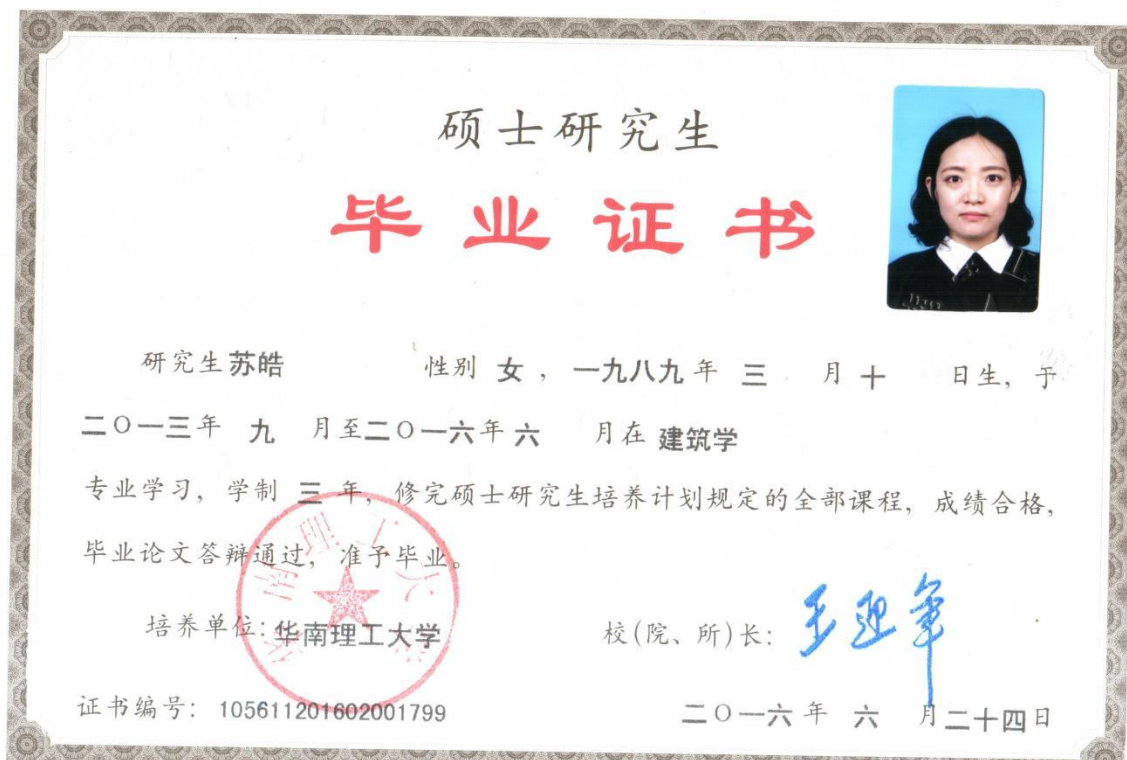 硕士研究生
毕业证书
研究生 苏皓 性别 女，一九八九年 三 月 十 日生，于
二〇一三年 九 月至二〇一六年 六 月在 建筑学
专业学习，学制 三 年，修完硕士研究生培养计划规定的全部课程，成绩合格，
毕业论文答辩通过，准予毕业。
华南理工大学
培养单位：华南理工大学 校(院、所)长：王迎军
证书编号：105611201602001799 二〇一六年 六 月二十四日